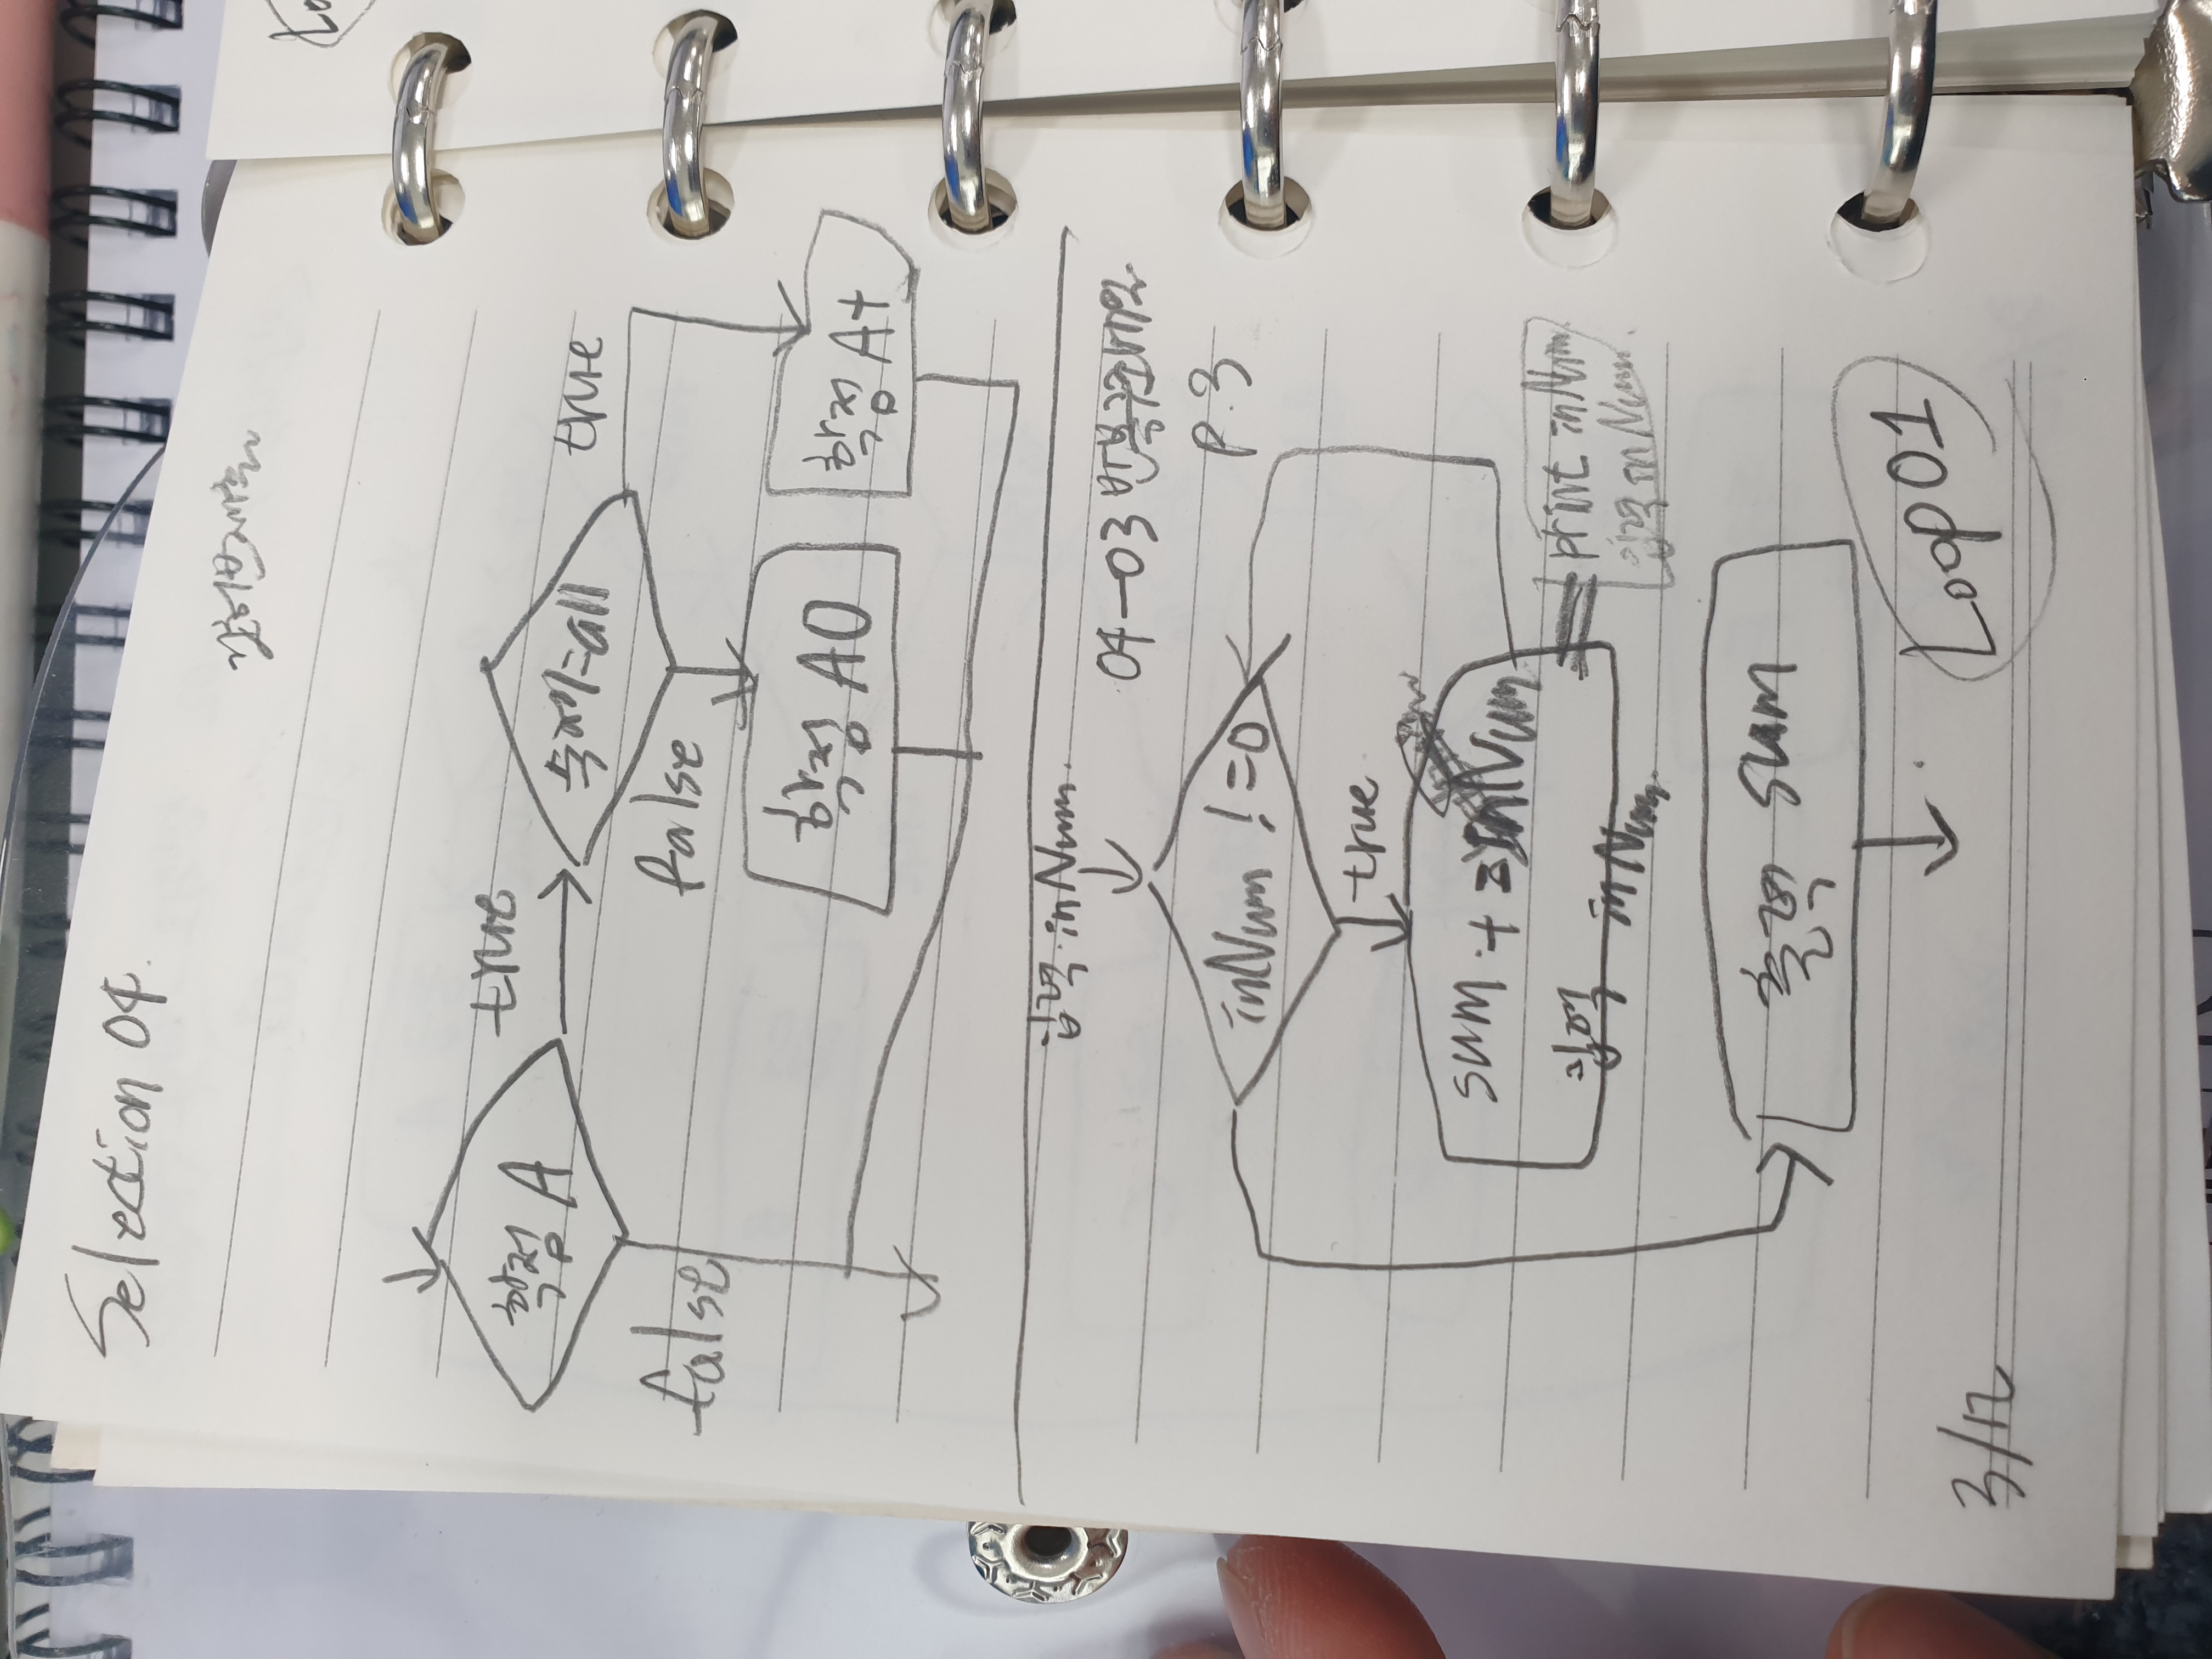 Selection 04.
깃허브제출
학점 A
true
숙제=all
true
false
false
학점 A0
학점 A+
입력 inNum.
04-03 반복구조예외
P.3
inNum != 0
true
sum += inNum
입력 inNum.
print inNum
입력 inNum.
출력 sum
Loop01
3/12